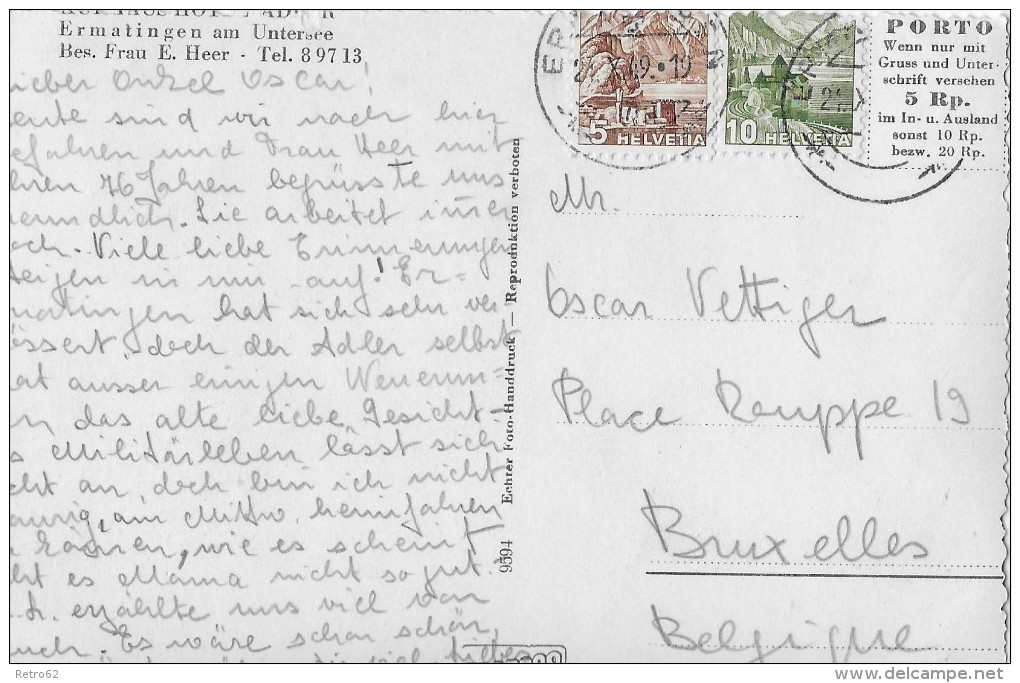 Ermatingen am Untersee
Bes. Frau E. Heer - Tel. 8 97 13
ieber Onkel Oscar!
eute sind wir nach hier
efahren und Frau Heer mit
hren 76 Jahren begrüsste uns
eundlich. Sie arbeitet immer
och. Viele liebe Erinnerungen
eigen in mir auf! Er=
matingen hat sich sehr ver
essert, doch der Adler selbst
at ausser einigen
en das alte liebe Gesicht
s Militärleben lässt sich
cht an, doch bin ich nicht
aurig, am heimfahren
können, wie es scheint
ht es Mama nicht so gut.
erzählte uns viel von
uch. Es wäre schon schön,
5 HELVETIA
10 HELVETIA
PORTO
Wenn nur mit
Gruss und Unter-
schrift versehen
5 Rp.
im In- u. Ausland
sonst 10 Rp.
bezw. 20 Rp.
9594 Echter Foto-Handdruck — Reproduktion verboten
Mr.
Oscar Vettiger
Place Rouppe 19
Bruxelles
Belgique
Retro62
delcampe.net